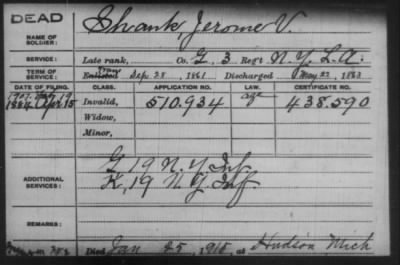 DEAD
NAME OF SOLDIER: Shank, Jerome V.
SERVICE: Late rank, Co. G, 3 Reg't N.Y. L.A.
TERM OF SERVICE: Enlisted Sep. 28, 1861 Discharged May 22, 1863
DATE OF FILING. CLASS. APPLICATION NO. LAW. CERTIFICATE NO.
1884 Apr 15 Invalid, 510.934 438.590
Widow,
Minor,
G 19 N.Y. Inf.
ADDITIONAL SERVICES: K, 19 N.Y. Inf.
REMARKS:
Died Jan 25, 1915 at Hudson Mich